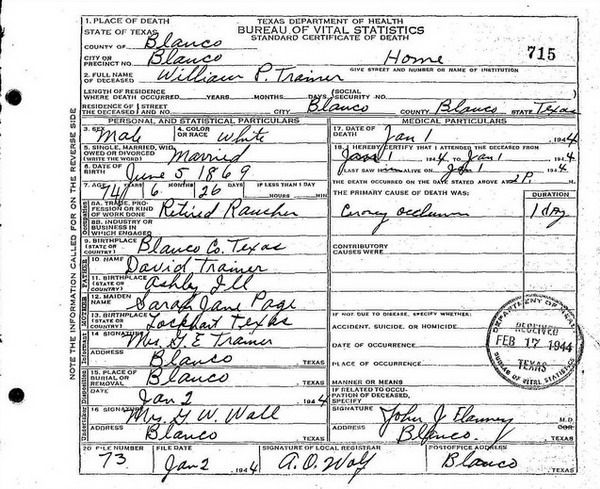 1. PLACE OF DEATH
STATE OF TEXAS
COUNTY OF Blanco
CITY OR PRECINCT NO. Blanco
TEXAS DEPARTMENT OF HEALTH
BUREAU OF VITAL STATISTICS
STANDARD CERTIFICATE OF DEATH
Home
GIVE STREET AND NUMBER OR NAME OF INSTITUTION
715
2. FULL NAME OF DECEASED William P. Trainer
LENGTH OF RESIDENCE WHERE DEATH OCCURRED YEARS MONTHS DAYS SOCIAL SECURITY NO.
RESIDENCE OF THE DECEASED STREET AND NO. CITY Blanco COUNTY Blanco STATE Texas
PERSONAL AND STATISTICAL PARTICULARS
3. SEX Male 4. COLOR OR RACE White
5. SINGLE, MARRIED, WIDOWED OR DIVORCED (WRITE THE WORD) Married
6. DATE OF BIRTH June 5 1869
7. AGE 74 YEARS 6 MONTHS 26 DAYS IF LESS THAN 1 DAY HOURS MIN
8A. TRADE, PROFESSION OR KIND OF WORK DONE Retired Rancher
8B. INDUSTRY OR BUSINESS IN WHICH ENGAGED
9. BIRTHPLACE (STATE OR COUNTRY) Blanco Co. Texas
10. NAME David Trainer
11. BIRTHPLACE (STATE OR COUNTRY) Ashley Ill
12. MAIDEN NAME Sarah Jane Page
13. BIRTHPLACE (STATE OR COUNTRY) Lockhart Texas
14. SIGNATURE Mrs. G E Trainer
ADDRESS Blanco TEXAS
15. PLACE OF BURIAL OR REMOVAL Blanco TEXAS
DATE Jan 2 1944
16. SIGNATURE Mrs. G. W. Wall
ADDRESS Blanco TEXAS
MEDICAL PARTICULARS
17. DATE OF DEATH Jan 1 1944
18. I HEREBY CERTIFY THAT I ATTENDED THE DECEASED FROM
Jan 1 1944 TO Jan 1 1944
I LAST SAW ALIVE ON Jan 1 1944
THE DEATH OCCURRED ON THE DATE STATED ABOVE AT 2 P. M.
THE PRIMARY CAUSE OF DEATH WAS: DURATION
1 day
CONTRIBUTORY CAUSES WERE:
IF NOT DUE TO DISEASE, SPECIFY WHETHER:
ACCIDENT, SUICIDE, OR HOMICIDE
DATE OF OCCURRENCE
PLACE OF OCCURRENCE
MANNER OR MEANS
IF RELATED TO OCCUPATION OF DECEASED, SPECIFY
SIGNATURE John J M.D.
ADDRESS Blanco TEXAS
DEPARTMENT OF HEALTH
RECEIVED
FEB 17 1944
TEXAS
BUREAU OF VITAL STATISTICS
20 FILE NUMBER 73
FILE DATE Jan 2 1944
SIGNATURE OF LOCAL REGISTRAR A. O. Wolf
POSTOFFICE ADDRESS Blanco TEXAS
NOTE THE INFORMATION CALLED FOR ON THE REVERSE SIDE